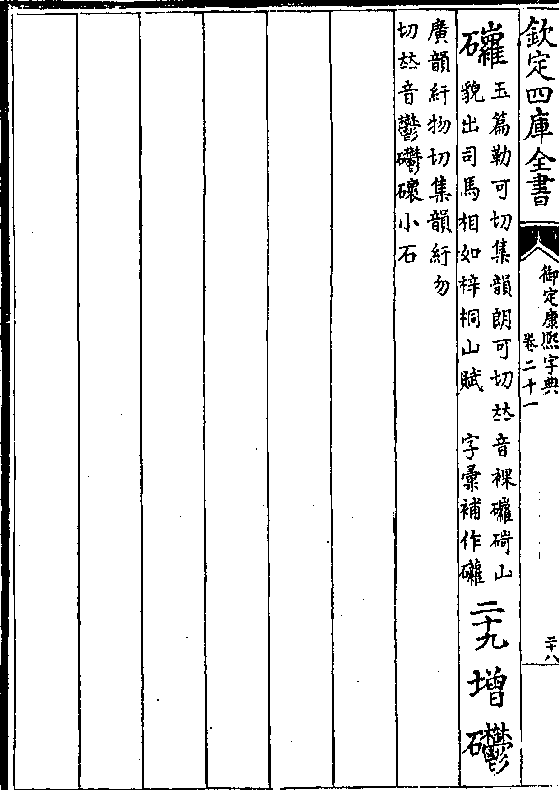 欽定四庫全書
御定康熙字典
卷二十一
玉篇勒可切集韻朗可切𠀤音裸碕山
貌出司馬相如梓桐山賦　字彙補作
二十九
增
廣韻紆物切集韻紆勿
切𠀤音鬱小石